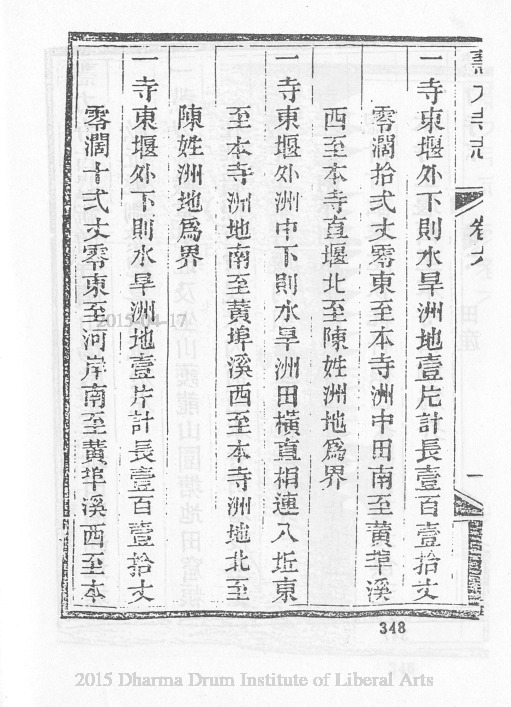 一寺東堰外下則水旱洲地壹片計長壹百壹拾丈
零濶拾弍丈零東至本寺洲中田南至黄埠溪
西至本寺直堰北至陳姓洲地爲界
一寺東堰外洲中下則水旱洲田橫直相連八坵東
至本寺洲地南至黄埠溪西至本寺洲地北至
陳姓洲地爲界
一寺東堰外下則水旱洲地壹片計長壹百壹拾丈
零濶十弍丈零東至河岸南至黄埠溪西至本
348
2015-04-17
2015 Dharma Drum Institute of Liberal Arts